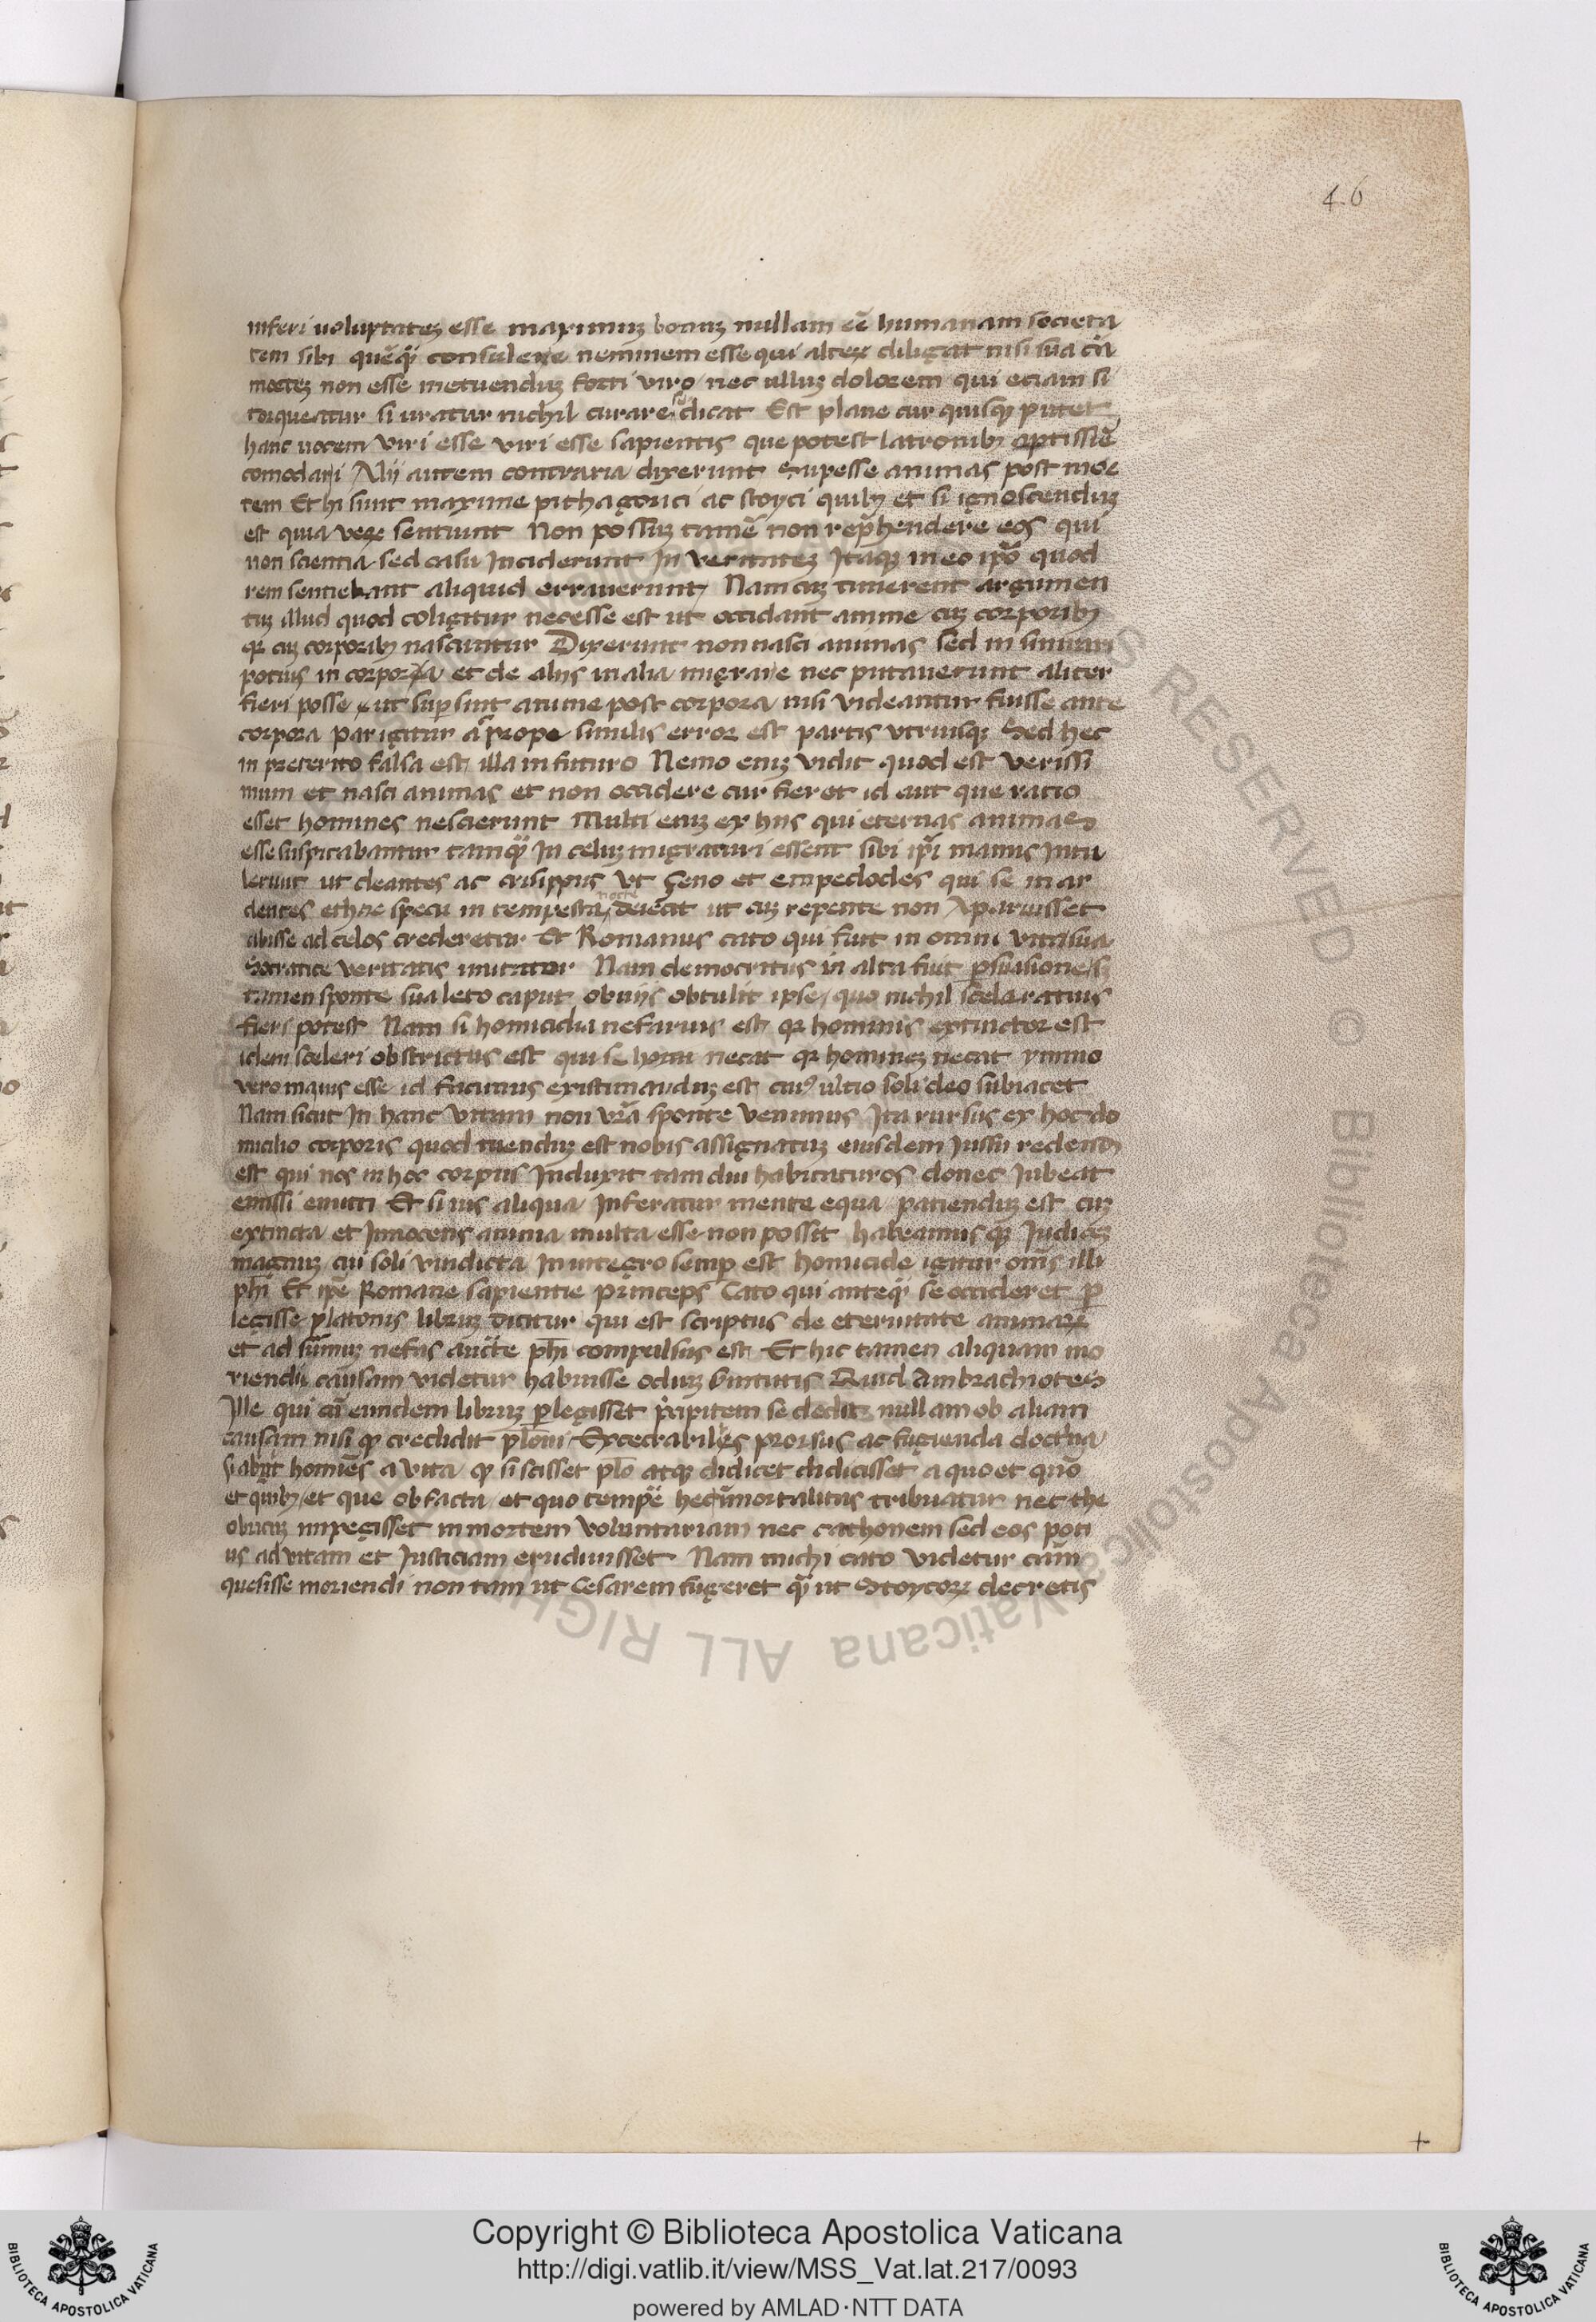 46
inferi voluptatez esse maximuz bonuz nullam eē humanam societa
tem sibi quēq̄ȝ consulere neminem esse qui alterȝ diligat nisi sua cā
mortez non esse metuenduz forti viro nec ulluz dolorem qui etiam si
torqueatur si uratur nichil curare se dicat Est plane cur quisqȝ putet
hanc uocem viri esse viri esse sapientis que potest latronibȝ aptissiē
comodari Alij autem contraria dixerunt supesse animas post mor
tem Et hi sunt maxime pithagorici ac stoyci quibȝ et si ignoscenduz
est quia vere sentiunt Non possuz tamē non rep̄hendere eos qui
non scientia sed casu Inciderunt In veritatez Itaqȝ in eo ip̄o quod
rem sentiebant aliquid erraverunt Nam cuz timerent argumen
tuz illud quod coligitur necesse est ut occidant anime cuz corporibȝ
qȝ cuz corporibȝ nascuntur Dixerunt non nasci animas sed insinuari
potius in corpora et de aliis in alia migrare nec putaverunt aliter
fieri posse ut sup̱sint anime post corpora nisi videantur fuisse ante
corpora par igitur ac prope similis error est partis utriusqȝ Sed hec
in preterito falsa est illa in futuro Nemo eniz vidit quod est verissi
mum et nasci animas et non occidere cur fieret id aut que ratio
esset hominis nescierunt Multi eniz ex hiis qui eternas animas
esse suspicabantur tamqȝ In celuz migraturi essent sibi ip̄i manus Intu
lerunt ut cleantes ac crisippus ut Zeno et empedocles qui se in ar
dentes ethne specu in tempesta nocte deiecit ut cuz repente non Aparuisset
abisse ad celos crederetur Et Romanus cato qui fuit in omni vita sua
Socratice veritatis imitator Nam democritus in alta fuit p̱suasione sz
tamen sponte sua leto caput obuiis obtulit ipse quo nichil scelaratius
fieri potest Nam si homicida nefarius est qȝ hominis extinctor est
idem sceleri obstrictus est qui se necat qȝ hominez necat ymmo
vero maius esse id facinus existimanduz est cuiꝰ ultio soli deo subiacet
Nam sicut In hanc vitam non vr̄a sponte venimus Ita rursus ex hoc do
micilio corporis quod tuenduz est nobis assignatuz eiusdem Jussu recedendum
est qui nos in hoc corpus Induxit tam diu habitaturos donec Jubeat
emissi emitti Et si uis aliqua Inferatur mente equa patienduz est cuz
extincta et Innocens anima multa esse non possit habeamusqȝ Judicez
magnuz cui soli vindicta In integro semp̱ est homicide igitur om̄s illi
ph̄i Et ip̄e Romane sapientie princeps Cato qui anteqȝ se occideret p̱
legisse platonis libruz dicitur qui est scriptus de eternitate animarȝ
et ad sum̄uz nefas auct̄e ph̄i compulsus est Et hic tamen aliquam mo
riendi causam videtur habuisse odiuz Quid Ambrachiotes
Ille qui cū eundem libruz p̱legisset p̄cipitem se dedit nullam ob aliam
causam nisi qȝ credidit plōni Execrabilis prorsus ac fugienda doctrina
si abigit homiēs a vita qȝ si scisset plō atqȝ didicet didicisset a quo et quō
et quibȝ et que ob facta et quo temp̱e hec īmortalitas tribuatur nec the
obrucuz impegisset in mortem voluntariam nec cathonem sed eos poti
us ad vitam et Justiciam erudiuisset Nam michi cato videtur cām
quesisse moriendi non tam ut Cesarem fugeret q̄ȝ ut Stoycorȝ decretis
Copyright © Biblioteca Apostolica Vaticana
http://digi.vatlib.it/view/MSS_Vat.lat.217/0093
powered by AMLAD·NTT DATA
BIBLIOTECA APOSTOLICA VATICANA
BIBLIOTECA APOSTOLICA VATICANA